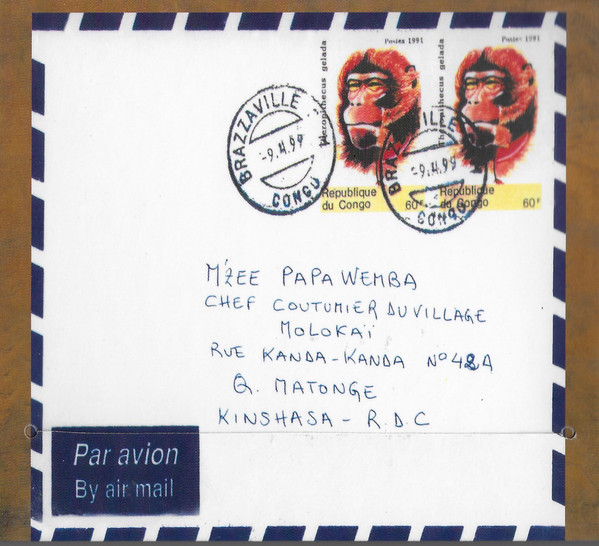 Postes 1991
Theropithecus gelada
Republique
du Congo
60F
Postes 1991
Theropithecus gelada
Republique
du Congo
60F
BRAZZAVILLE
-9.4.99
CONGO
BRAZZAVILLE
-9.4.99
CONGO
M'ZEE PAPA WEMBA
CHEF COUTUMIER DU VILLAGE
MOLOKAÏ
RUE KANDA-KANDA N°48A
Q. MATONGE
KINSHASA - R.D.C
Par avion
By air mail